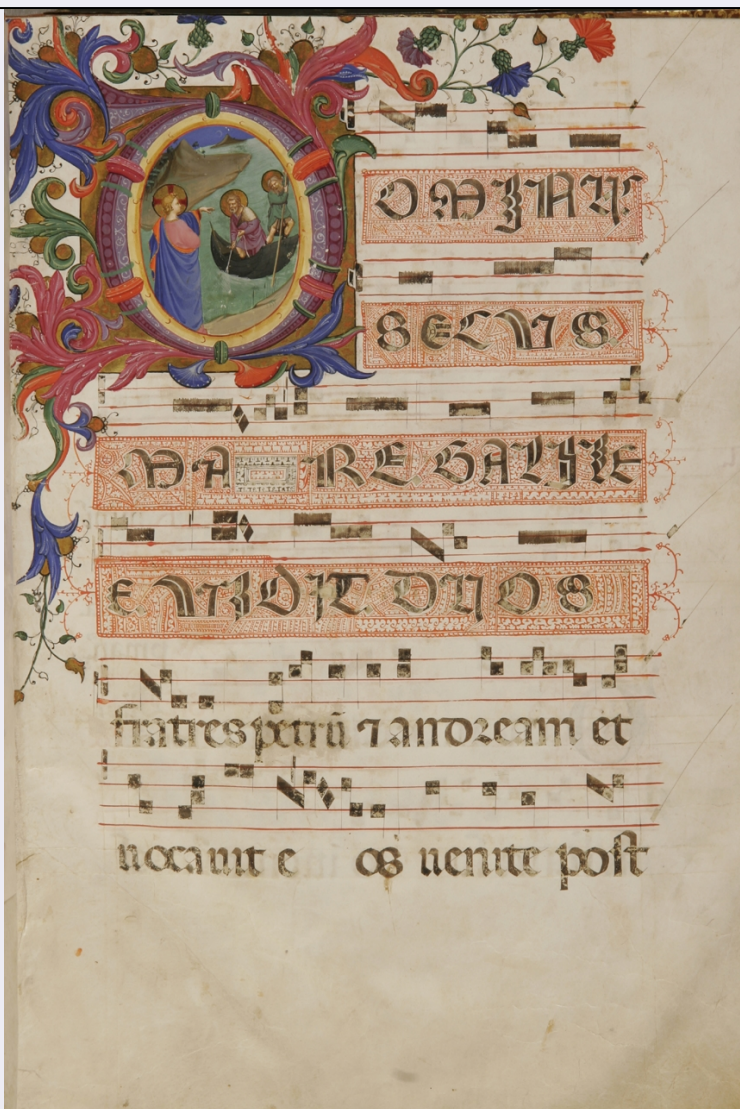 DOMINUS
SECUS
MA RE GALILE
E UIDIT DUOS
fratres petrũ ⁊ andream et
uocauit e os uenite post